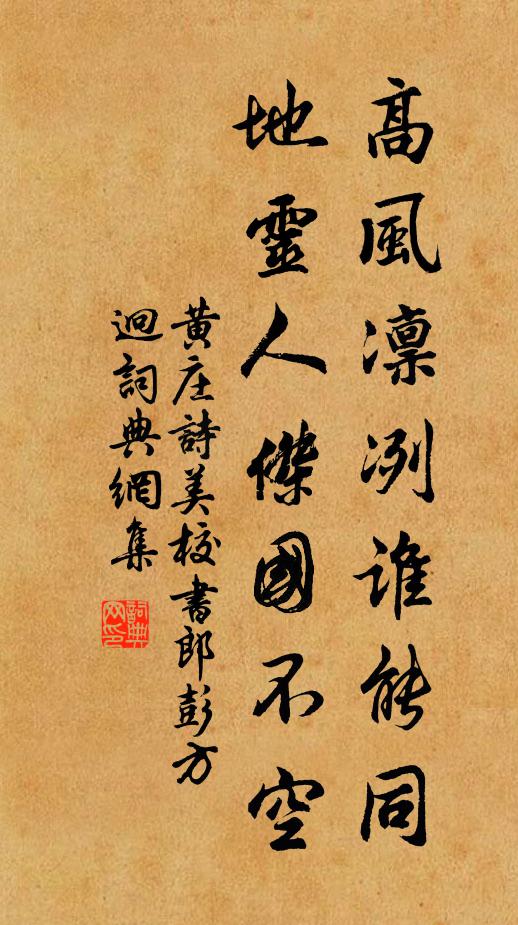 高風凛冽誰能同
地靈人傑國不空
黄庄詩美校書郎彭方
迥詞典網集
詞典
网印